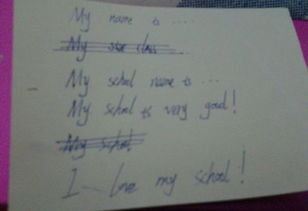 My name is ....
My class
My school name is ...
My school is very good!
My school
I love my school!